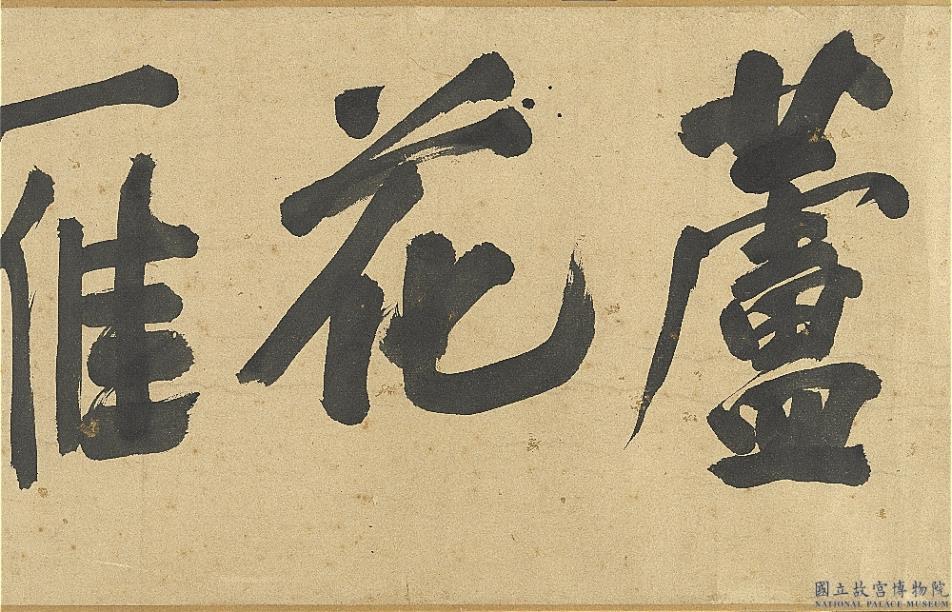 蘆花雁
國立故宮博物院
NATIONAL PALACE MUSEUM